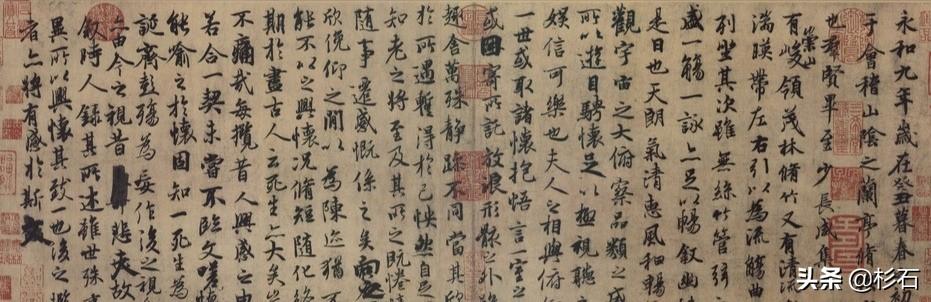 永和九年歲在癸丑暮春
于會稽山陰之蘭亭脩
也羣賢畢至少長咸集
有崇山峻領茂林脩竹又有清流
湍暎帶左右引以為流觴曲
列坐其次雖無絲竹管弦
盛一觴一詠亦足以暢敘幽
是日也天朗氣清惠風和暢
觀宇宙之大俯察品類之
所以遊目騁懷足以極視聽
娛信可樂也夫人之相與俯
一世或取諸懷抱悟言一室之
或因寄所託放浪形骸之外
趣舍萬殊静躁不同當其欣
於所遇蹔得於己怏然自足
知老之將至及其所之既惓
隨事遷感慨係之矣向之
欣俛仰之閒以為陳迹猶不
能不以之興懷況脩短隨化
期於盡古人云死生亦大矣
不痛哉每攬昔人興感之由
若合一契未嘗不臨文嗟悼
能喻之於懷固知一死生為
誕齊彭殤為妄作後之視
亦由今之視昔悲夫故
敘時人錄其所述雖世殊事
異所以興懷其致一也後之攬
者亦將有感於斯文
头条 @杉石